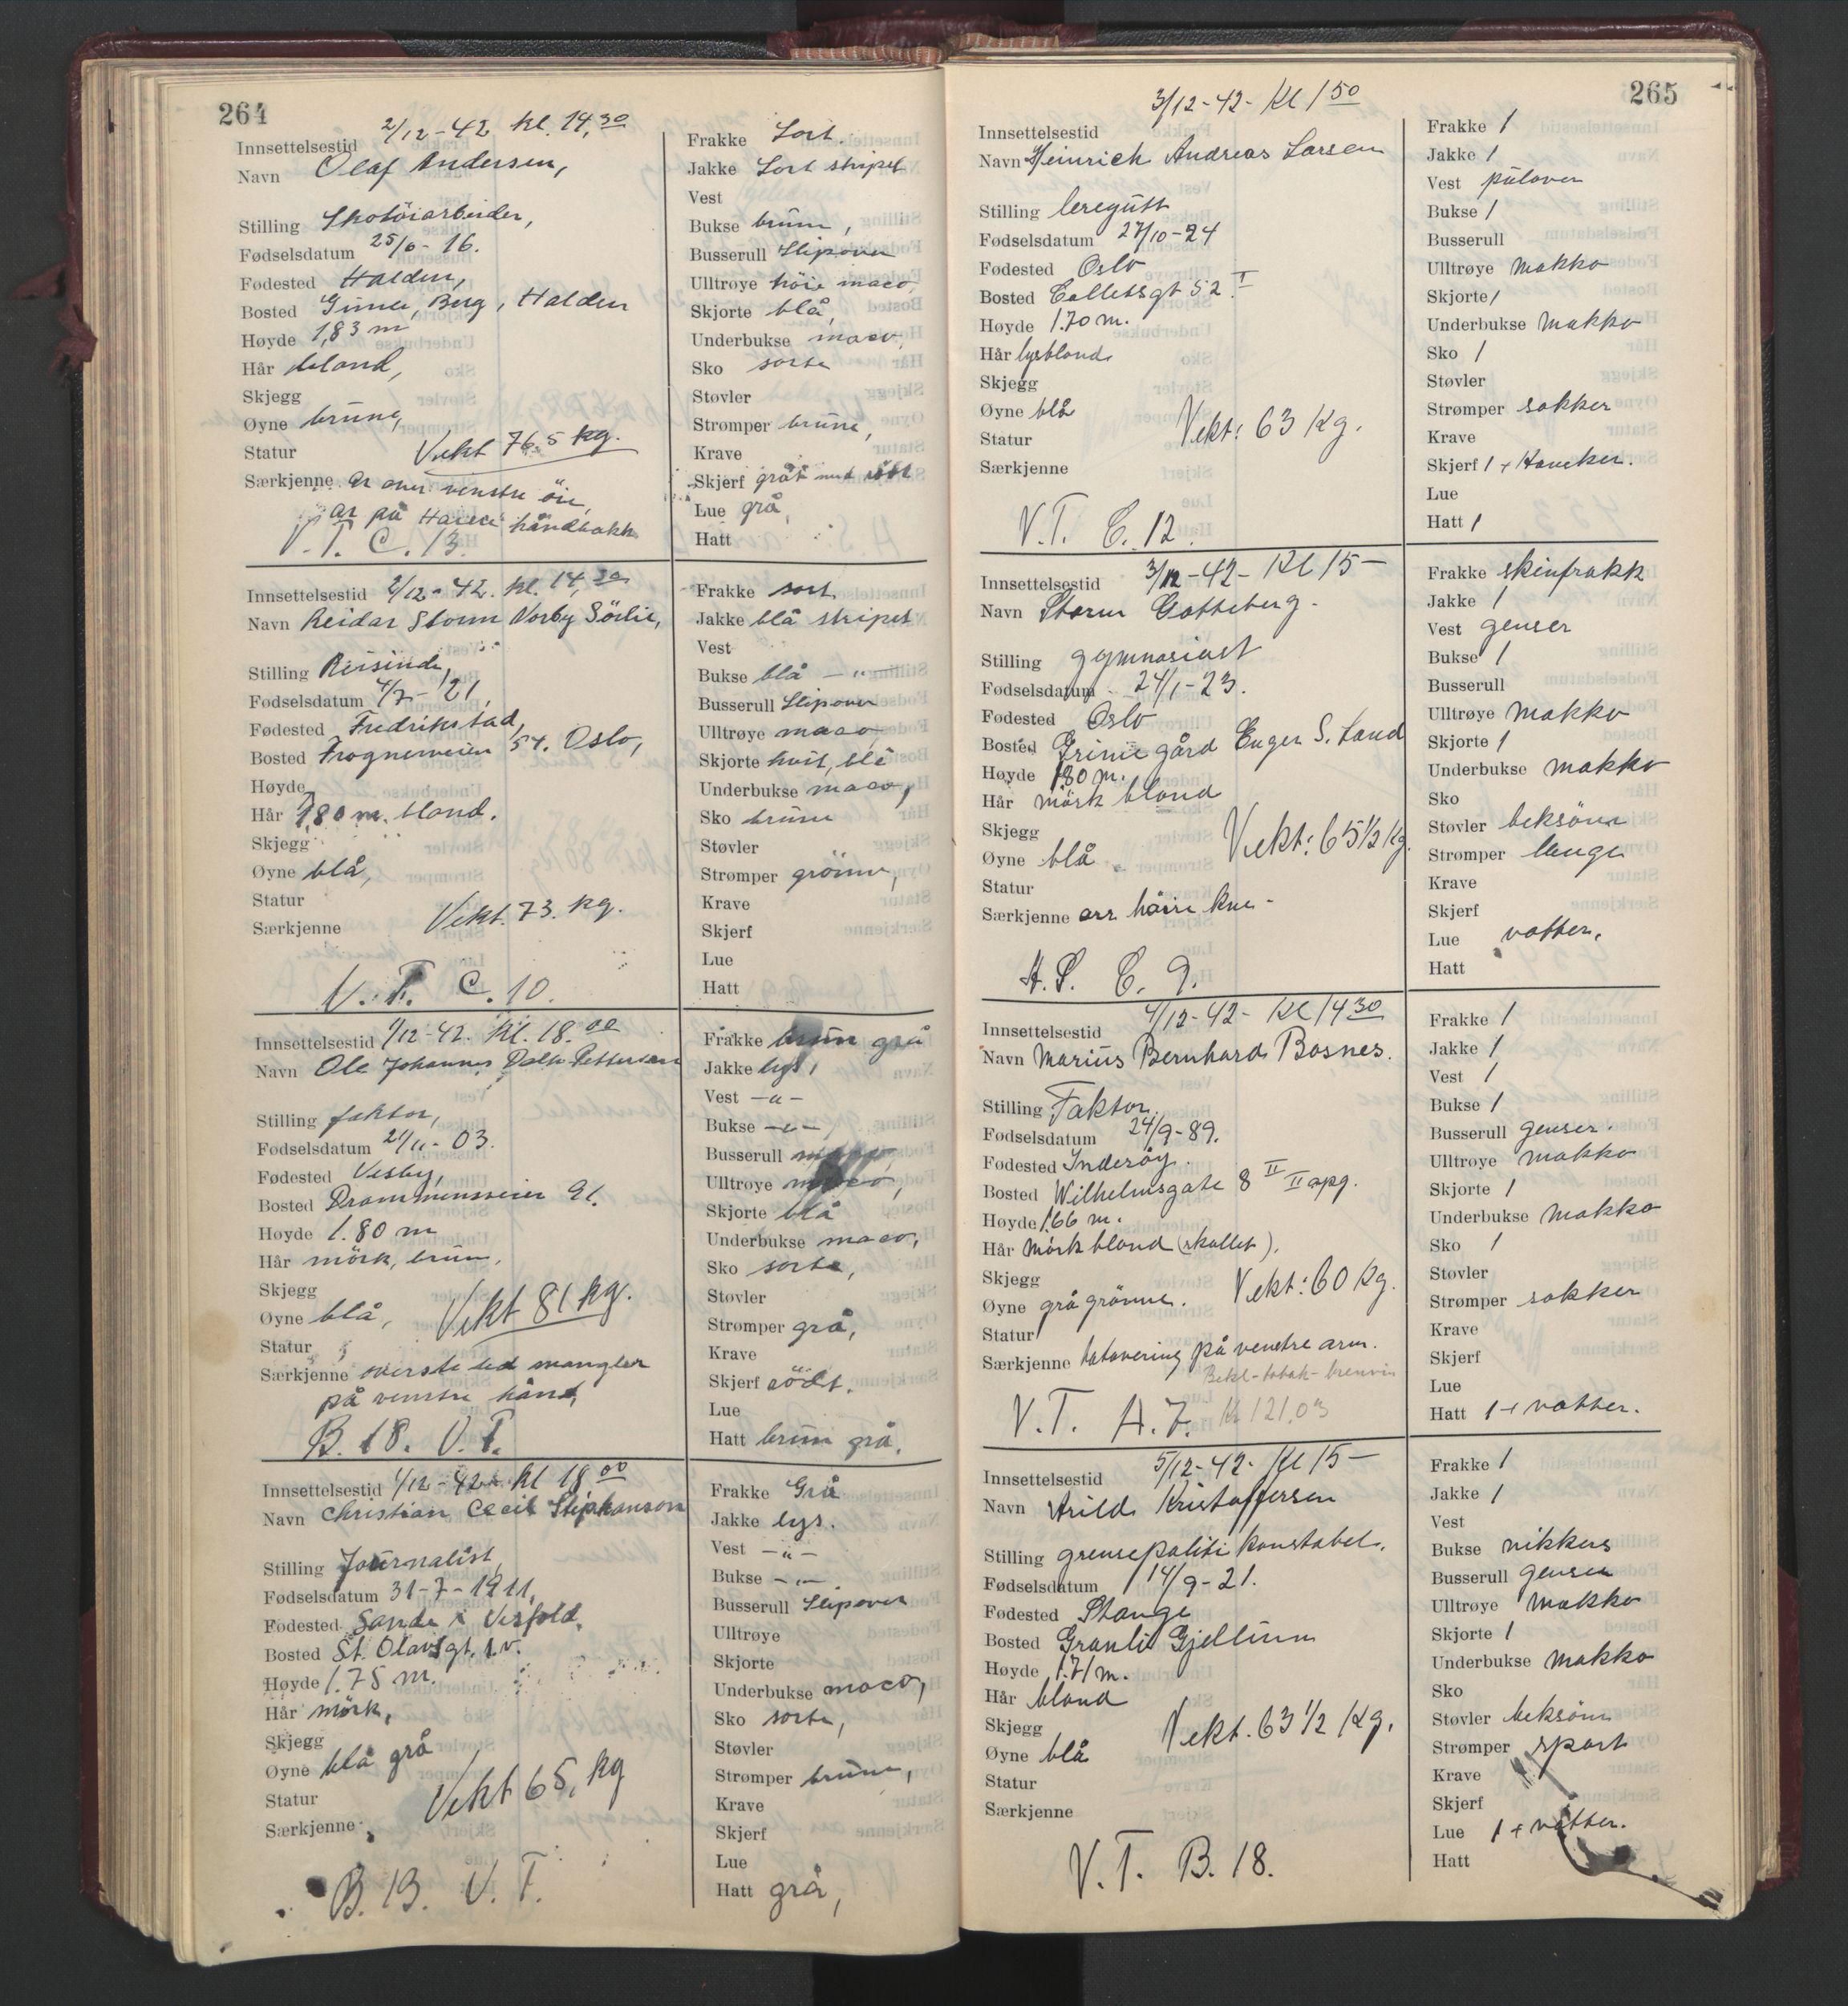 264
Innsettelsestid 2/12-42 kl. 14,30
Navn Olaf Andersen,
Stilling Skotöiarbeider,
Fødselsdatum 25/6-16.
Fødested Halden,
Bosted Gimle, Berg, Halden
Høyde 1,83 m
Hår blond,
Skjegg
Øyne brune,
Statur Vekt 76.5 kg.
Særkjenne Ar over venstre öie,
ar på håndbakk
V.T. C. 13.
Frakke Sort.
Jakke Sort stripet
Vest
Bukse brun,
Busserull Slipover
Ulltrøye höie maco,
Skjorte blå,
Underbukse maco,
Sko sorte
Støvler
Strømper brune,
Krave
Skjerf grått med rött
Lue grå,
Hatt
Innsettelsestid 2/12-42. kl. 14,30
Navn Reidar Storm Vorby Sörlie,
Stilling Reisende,
Fødselsdatum 4/7-21,
Fødested Fredrikstad,
Bosted Frognerveien 54. Oslo,
Høyde
Hår 1,80 m. blond.
Skjegg
Øyne blå,
Statur
Særkjenne Vekt. 73. kg.
V.T. C. 10.
Frakke sort,
Jakke blå stripet
Vest
Bukse blå -"-
Busserull Slipover
Ulltrøye maco,
Skjorte hvit, blå
Underbukse maco,
Sko brune
Støvler
Strømper grönne,
Krave
Skjerf
Lue
Hatt
Innsettelsestid 1/12-42. Kl. 18.00
Navn Ole Johannes Dahl Pettersen
Stilling faktor,
Fødselsdatum 21/11-03.
Fødested Vesby,
Bosted Drammensveien 91.
Høyde 1.80 m
Hår mörk, brun.
Skjegg
Øyne blå, Vekt 81 kg.
Statur
Særkjenne överste led mangler
på venstre hånd,
B. 18. V.T.
Frakke brun grå
Jakke lys,
Vest -"-
Bukse -"-
Busserull
Ulltrøye maco,
Skjorte blå
Underbukse maco,
Sko sorte,
Støvler
Strømper grå,
Krave
Skjerf rödt.
Lue
Hatt brun grå.
Innsettelsestid 1/12-42 kl 18.00
Navn Christian Cecil Stephanson
Stilling Journalist,
Fødselsdatum 31-7-1911,
Fødested Sande i Vesfold,
Bosted St. Olavsgt. 1.v.
Høyde 1.75 m.
Hår mörk,
Skjegg
Øyne blå grå
Statur Vekt 65, kg
Særkjenne
B. 13. V.T.
Frakke Grå
Jakke lys.
Vest -"-
Bukse -"-
Busserull Slipover
Ulltrøye
Skjorte
Underbukse maco,
Sko sorte,
Støvler
Strømper brune,
Krave
Skjerf
Lue
Hatt grå,
265
Innsettelsestid 3/12-42- Kl 150
Navn Heinrich Andreas Larsen
Stilling leregutt
Fødselsdatum 27/10-24
Fødested Oslo
Bosted Colletsgt 52 I
Høyde 1.70 m.
Hår lysblond
Skjegg
Øyne blå
Statur Vekt: 63 Kg.
Særkjenne
V.T. C. 12.
Frakke 1
Jakke 1
Vest pulover
Bukse 1
Busserull
Ulltrøye makko
Skjorte 1
Underbukse makko
Sko 1
Støvler
Strømper sokker
Krave
Skjerf 1 + Hansker.
Lue
Hatt 1
Innsettelsestid 3/12-42- Kl 15-
Navn Storm Gotteberg.
Stilling gymnasiast
Fødselsdatum 24/1-23.
Fødested Oslo
Bosted Grime gård Enger S. Land
Høyde 1.80 m.
Hår mörk blond
Skjegg
Øyne blå Vekt: 65 1/2 Kg.
Statur
Særkjenne arr höire kne-
A.S. C. 9.
Frakke skinfrakk
Jakke 1
Vest genser
Bukse 1
Busserull
Ulltrøye makko
Skjorte 1
Underbukse makko
Sko
Støvler beksöm
Strømper lange
Krave
Skjerf
Lue votter.
Hatt
Innsettelsestid 4/12-42- Kl 14 30
Navn Marius Bernhard Bosnes.
Stilling Faktor.
Fødselsdatum 24/9-89.
Fødested Inderöy.
Bosted Wilhelmsgate 8 II II opg.
Høyde 1.66 m.
Hår mörk blond (skallet).
Skjegg
Øyne grå grönne. Vekt: 60 Kg.
Statur
Særkjenne tatovering på venstre arm.
Bekl-tobak-brenvin
V.T. A. 7. Kr 121,03
Frakke 1
Jakke 1
Vest 1
Bukse 1
Busserull genser.
Ulltrøye makko
Skjorte 1
Underbukse makko
Sko 1
Støvler
Strømper sokker
Krave
Skjerf
Lue
Hatt 1 + votter.
Innsettelsestid 5/12-42- Kl 15-
Navn Arild Kristoffersen
Stilling grensepoliti konstabel.
Fødselsdatum 14/9-21.
Fødested Stange
Bosted Granli Gjellum
Høyde 1.71 m.
Hår blond
Skjegg Vekt. 63 1/2 Kg.
Øyne blå
Statur
Særkjenne
V.T. B. 18.
Frakke 1
Jakke 1
Vest
Bukse nikkers
Busserull genser
Ulltrøye makko
Skjorte 1
Underbukse makko
Sko
Støvler beksöm
Strømper sport
Krave
Skjerf
Lue 1 + votter.
Hatt